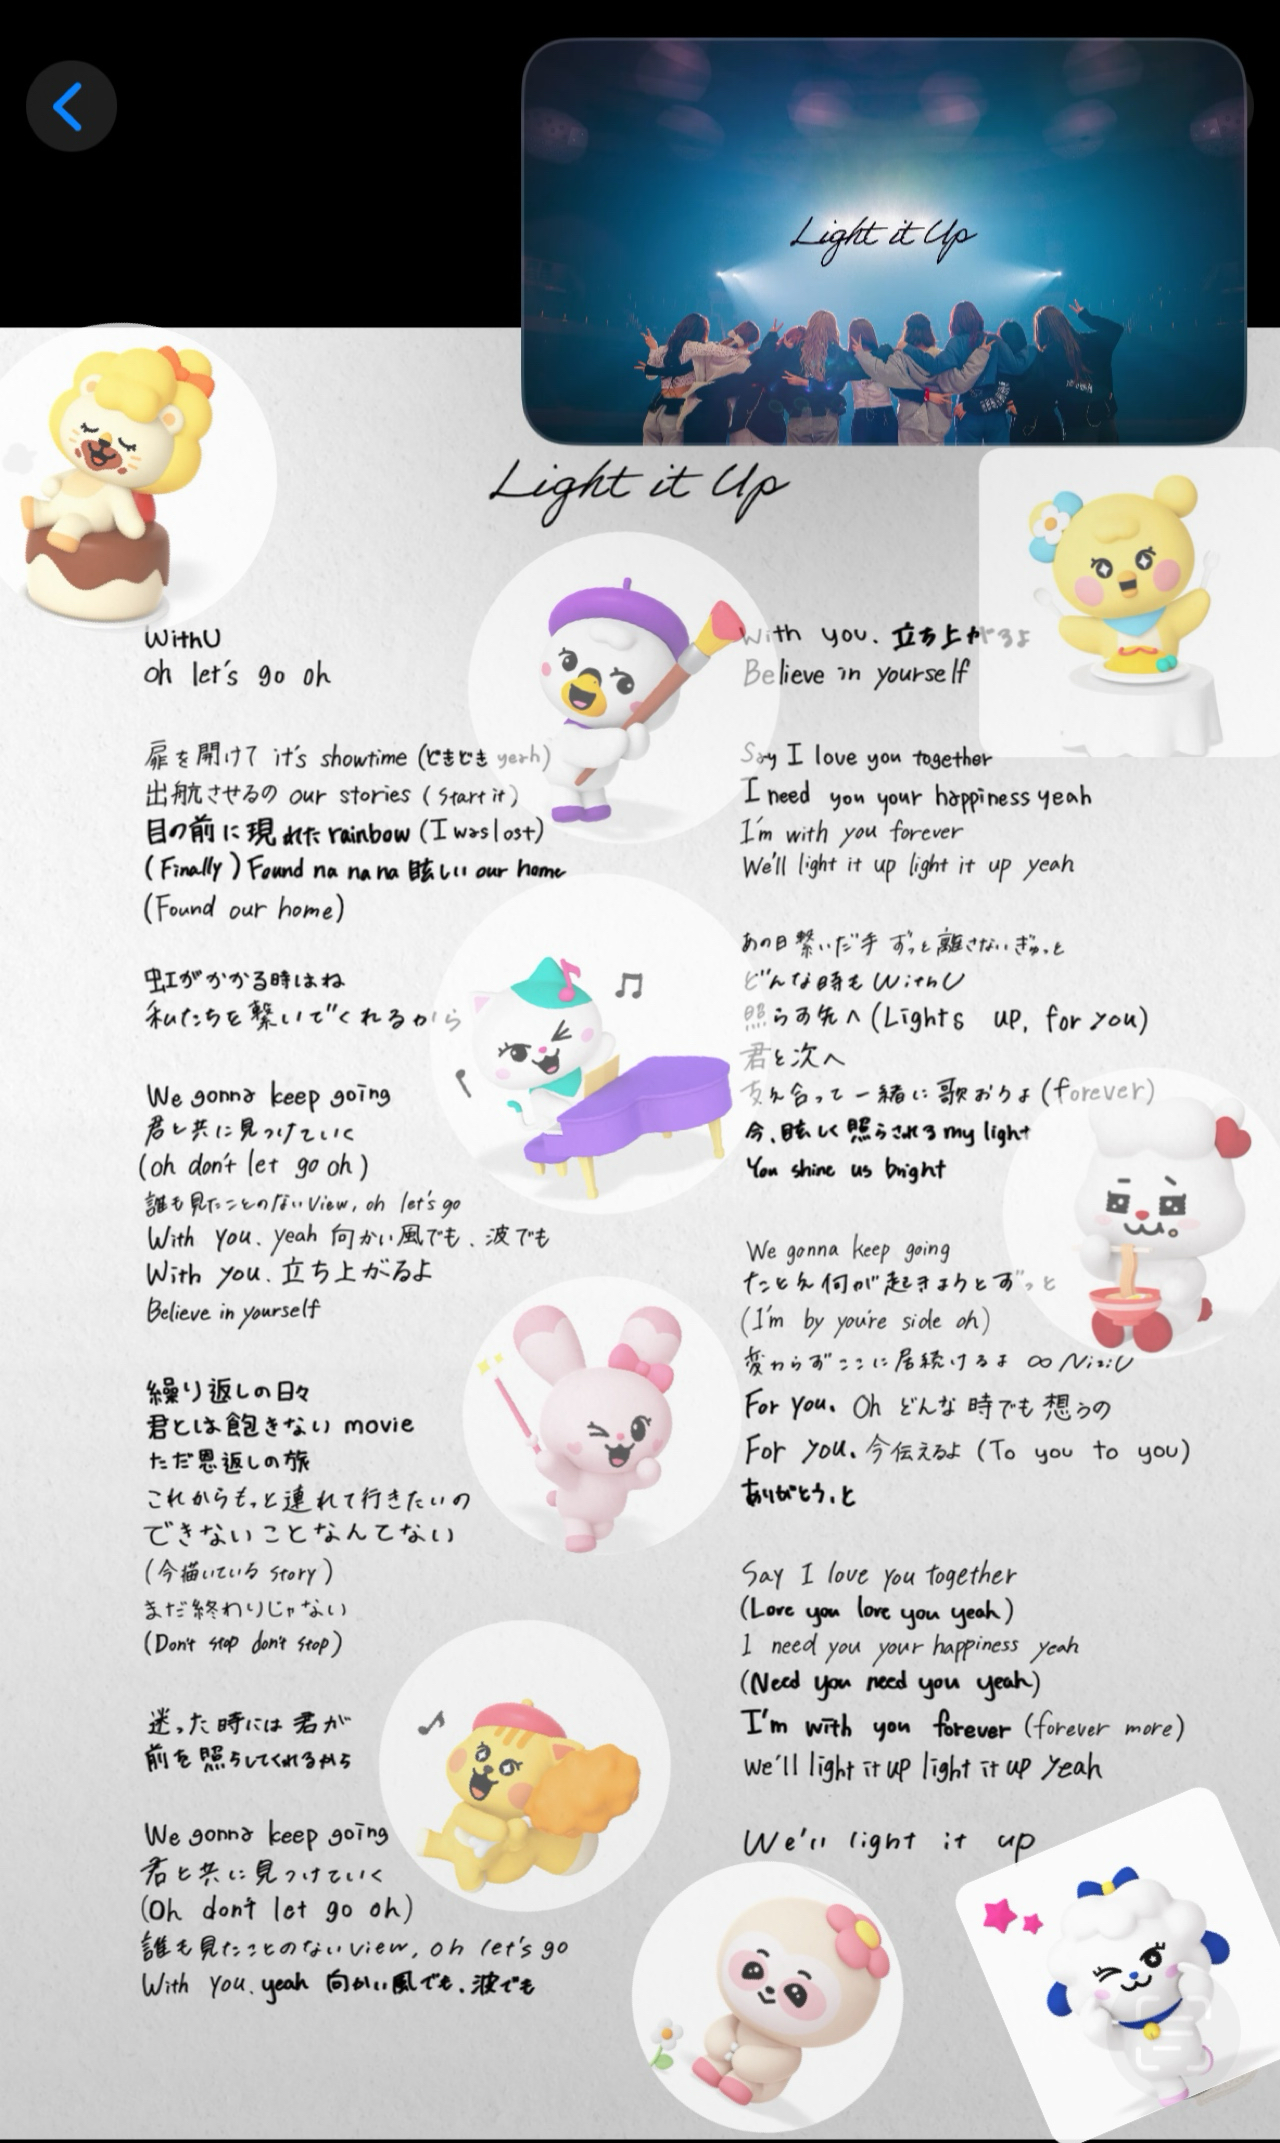 Light it Up
Light it Up
WithU
oh let's go oh
扉を開けて it's showtime (どきどき yeah)
出航させるの our stories (Start it)
目の前に現れた rainbow (I was lost)
(Finally) Found na na na 眩しい our home
(Found our home)
虹がかかる時はね
私たちを繋いでくれるから
We gonna keep going
君と共に見つけていく
(oh don't let go oh)
誰も見たことのない view, oh let's go
With you. yeah 向かい風でも、波でも
With you. 立ち上がるよ
Believe in yourself
繰り返しの日々
君とは飽きない movie
ただ恩返しの旅
これからもっと連れて行きたいの
できないことなんてない
(今描いている story)
まだ終わりじゃない
(Don't stop don't stop)
迷った時には君が
前を照らしてくれるから
We gonna keep going
君と共に見つけていく
(Oh don't let go oh)
誰も見たことのない view, oh let's go
With you. yeah 向かい風でも、波でも
With you. 立ち上がるよ
Believe in yourself
Say I love you together
I need you your happiness yeah
I'm with you forever
We'll light it up light it up yeah
あの日繋いだ手 ずっと離さないぎゅっと
どんな時も WithU
照らす先へ (Lights up, for you)
君と次へ
支え合って一緒に歌おうよ (forever)
今、眩しく照らされる my light
You shine us bright
We gonna keep going
たとえ何が起きようとずっと
(I'm by you're side oh)
変わらずここに居続けるよ ∞ NiziU
For you. Oh どんな時でも想うの
For you. 今伝えるよ (To you to you)
ありがとう、と
Say I love you together
(Love you love you yeah)
I need you your happiness yeah
(Need you need you yeah)
I'm with you forever (forever more)
We'll light it up light it up yeah
We'll light it up